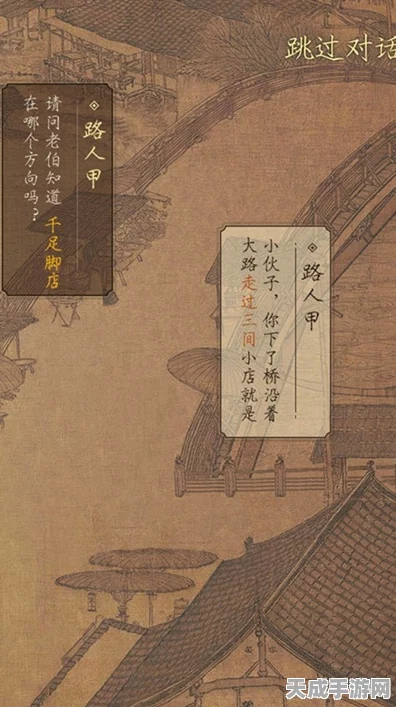 跳过对话
路人甲
请问老伯知道千足脚店
在哪个方向吗？
路人甲
小伙子，你下了桥沿着
大路走过三间小店就是
天成手游网